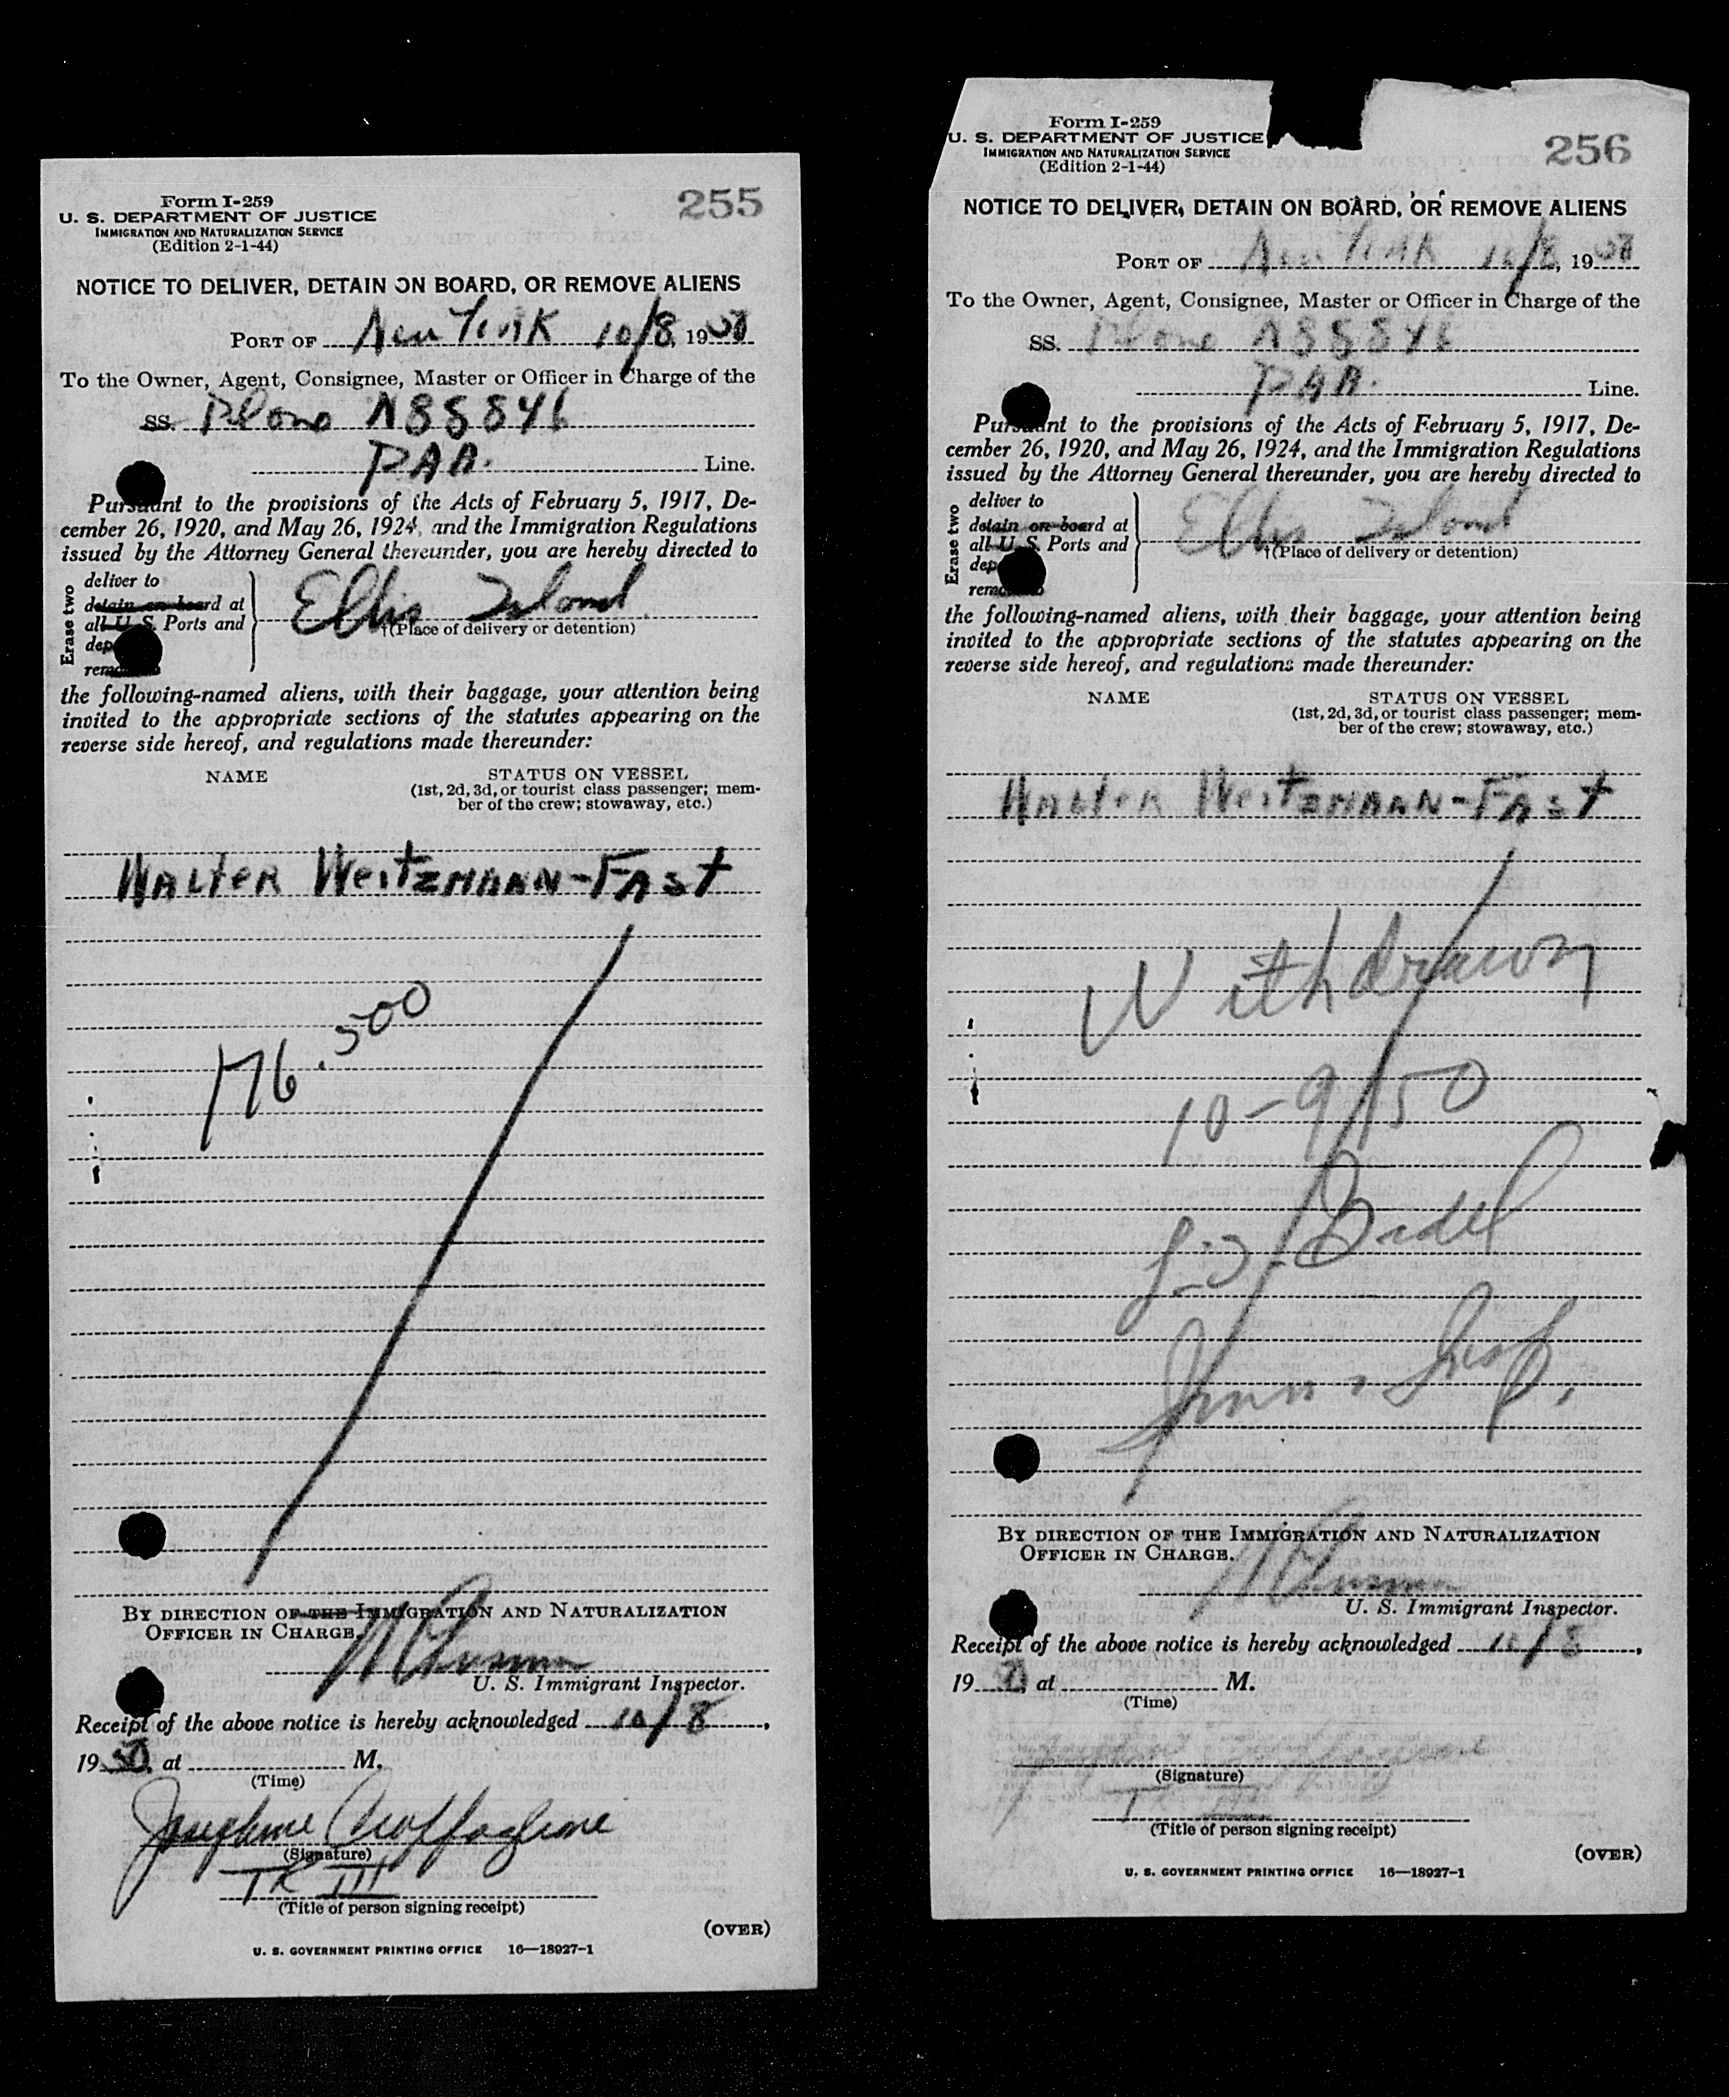 Form I-259
U. S. DEPARTMENT OF JUSTICE
IMMIGRATION AND NATURALIZATION SERVICE
(Edition 2-1-44)
255
NOTICE TO DELIVER, DETAIN ON BOARD, OR REMOVE ALIENS
PORT OF New York 10/8, 1950
To the Owner, Agent, Consignee, Master or Officer in Charge of the
SS. Plane N88846
PAA. Line.
Pursuant to the provisions of the Acts of February 5, 1917, De-
cember 26, 1920, and May 26, 1924, and the Immigration Regulations
issued by the Attorney General thereunder, you are hereby directed to
Erase two
deliver to
detain on board at
all U. S. Ports and
dep
remove to
Ellis Island
†(Place of delivery or detention)
the following-named aliens, with their baggage, your attention being
invited to the appropriate sections of the statutes appearing on the
reverse side hereof, and regulations made thereunder:
NAME
STATUS ON VESSEL
(1st, 2d, 3d, or tourist class passenger; mem-
ber of the crew; stowaway, etc.)
WALTER WEITZMANN-FAST
176.500
BY DIRECTION OF THE IMMIGRATION AND NATURALIZATION
OFFICER IN CHARGE.
U. S. Immigrant Inspector.
Receipt of the above notice is hereby acknowledged 10/8,
1950, at M.
(Time)
Josephine
(Signature)
TR III
(Title of person signing receipt)
(OVER)
U. S. GOVERNMENT PRINTING OFFICE 16—18927-1
Form I-259
U. S. DEPARTMENT OF JUSTICE
IMMIGRATION AND NATURALIZATION SERVICE
(Edition 2-1-44)
256
NOTICE TO DELIVER, DETAIN ON BOARD, OR REMOVE ALIENS
PORT OF New York 10/8, 1950
To the Owner, Agent, Consignee, Master or Officer in Charge of the
SS. Plane N88846
PAA. Line.
Pursuant to the provisions of the Acts of February 5, 1917, De-
cember 26, 1920, and May 26, 1924, and the Immigration Regulations
issued by the Attorney General thereunder, you are hereby directed to
Erase two
deliver to
detain on board at
all U. S. Ports and
dep
remove to
Ellis Island
†(Place of delivery or detention)
the following-named aliens, with their baggage, your attention being
invited to the appropriate sections of the statutes appearing on the
reverse side hereof, and regulations made thereunder:
NAME
STATUS ON VESSEL
(1st, 2d, 3d, or tourist class passenger; mem-
ber of the crew; stowaway, etc.)
WALTER WEITZMANN-FAST
Withdrawn
10-9/50
Imm. Insp.
BY DIRECTION OF THE IMMIGRATION AND NATURALIZATION
OFFICER IN CHARGE.
U. S. Immigrant Inspector.
Receipt of the above notice is hereby acknowledged 10/8,
1950, at M.
(Time)
(Signature)
TR III
(Title of person signing receipt)
(OVER)
U. S. GOVERNMENT PRINTING OFFICE 16—18927-1